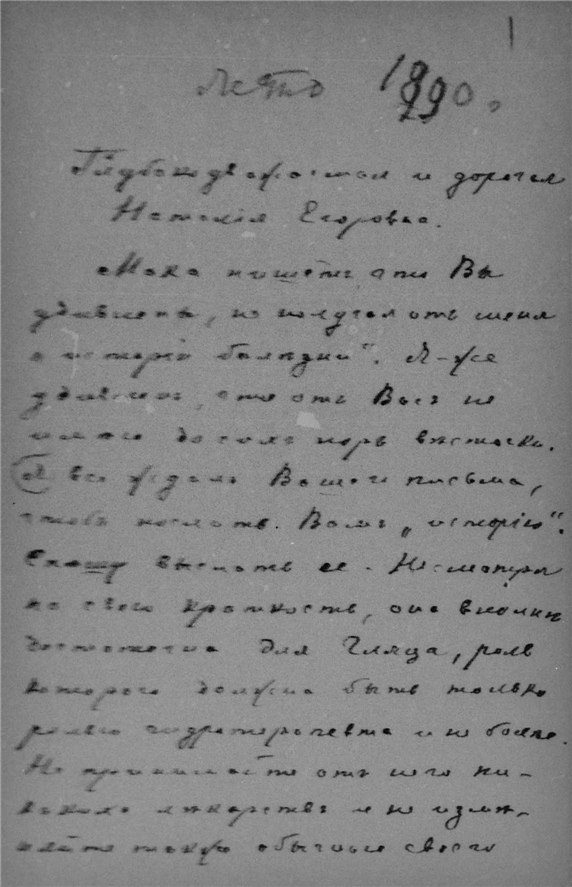 1
Лето 1890.
Глубокоуважаемая и дорогая
Наталія Егоровна.
Маха пишетъ, что Вы
удивлены, не получая отъ меня
"исторіи болѣзни". Я-же
удивленъ, что отъ Васъ не
имѣю до сихъ поръ вѣсточки.
Я все ждалъ Вашего письма,
чтобы послать Вамъ "исторію".
Спѣшу выслать ее. Несмотря
на свою краткость, она вполнѣ
достаточна для Гляца, роль
котораго должна быть только
ролью гидротерапевта и не болѣе.
Не принимайте отъ него ни-
какихъ лѣкарствъ и не измѣ-
няйте также обычнаго своего